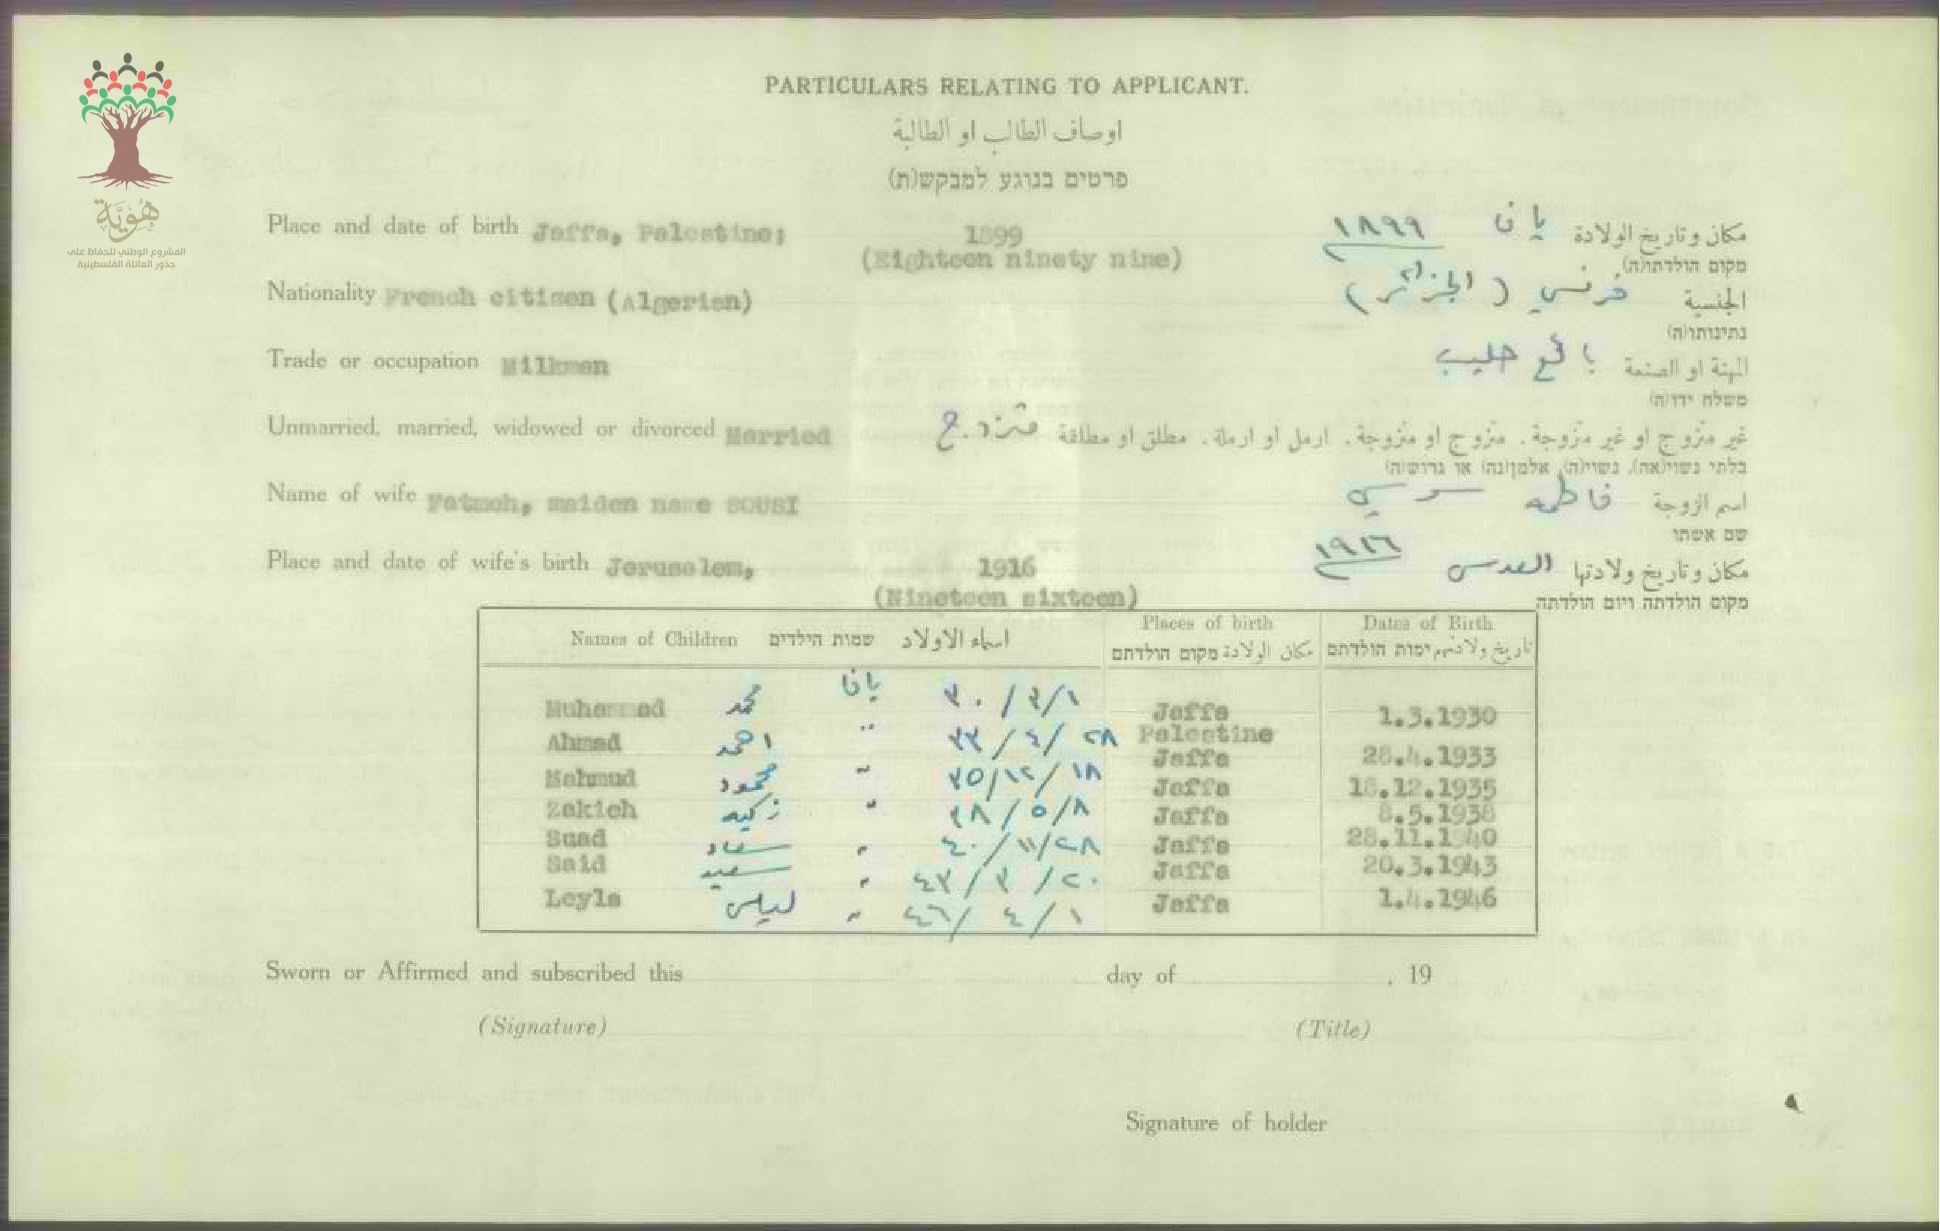 هُوِيَّة
المشروع الوطني للحفاظ على
جذور العائلة الفلسطينية
PARTICULARS RELATING TO APPLICANT.
اوصاف الطالب او الطالبة
פרטים בנוגע למבקש(ת)
Place and date of birth Jaffa, Palestine; 1899 يافا ١٨٩٩ مكان وتاريخ الولادة
(Eighteen ninety nine) מקום הולדתו(ה)
Nationality French citizen (Algerian) فرنسي (الجزائر) الجنسية
נתינותו(ה)
Trade or occupation Milkman بائع حليب المهنة او الصنعة
משלח ידו(ה)
Unmarried, married, widowed or divorced Married متزوج غير متزوج او غير متزوجة. متزوج او متزوجة. ارمل او ارملة. مطلق او مطلقة
בלתי נשוי(אה), נשוי(ה), אלמן(נה) או גרוש(ה)
Name of wife Fatmeh, maiden name SOUSI فاطمه سوسي اسم الزوجة
שם אשתו
Place and date of wife's birth Jerusalem, 1916 القدس ١٩١٦ مكان وتاريخ ولادتها
(Nineteen sixteen) מקום הולדתה ויום הולדתה
Names of Children שמות הילדים اسماء الاولاد Places of birth Dates of Birth
מקום הולדתם مكان الولادة ימות הולדתם تاريخ ولادتهم
Muhammad محمد يافا ٣٠/٣/١ Jaffa 1.3.1930
Palestine
Ahmad احمد " ٣٣/٤/٢٨ Jaffa 28.4.1933
Mahmud محمود " ٣٥/١٢/١٨ Jaffa 18.12.1935
Zakieh زكيه " ٣٨/٥/٨ Jaffa 8.5.1938
Suad سعاد " ٤٠/١١/٢٨ Jaffa 28.11.1940
Said سعيد " ٤٣/٣/٢٠ Jaffa 20.3.1943
Leyla ليلى " ٤٦/٤/١ Jaffa 1.4.1946
Sworn or Affirmed and subscribed this day of , 19
(Signature) (Title)
Signature of holder